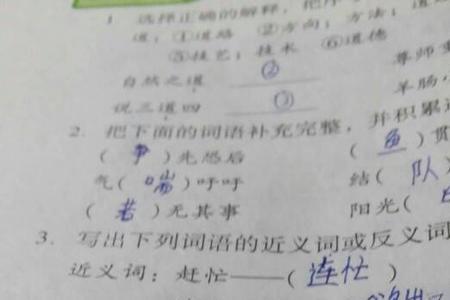 1 选择正确的解释，把序
道：①道路 ②方向；方法；道
⑤技艺；技术 ⑥道德
自然之道 ② 尊师
说三道四 ③ 羊肠
2. 把下面的词语补充完整，并积累
(争)先恐后 (鱼)贯
气(喘)吁吁 结(队
(若)无其事 阳光(
3. 写出下列词语的近义词或反义词
近义词：赶忙——(连忙)